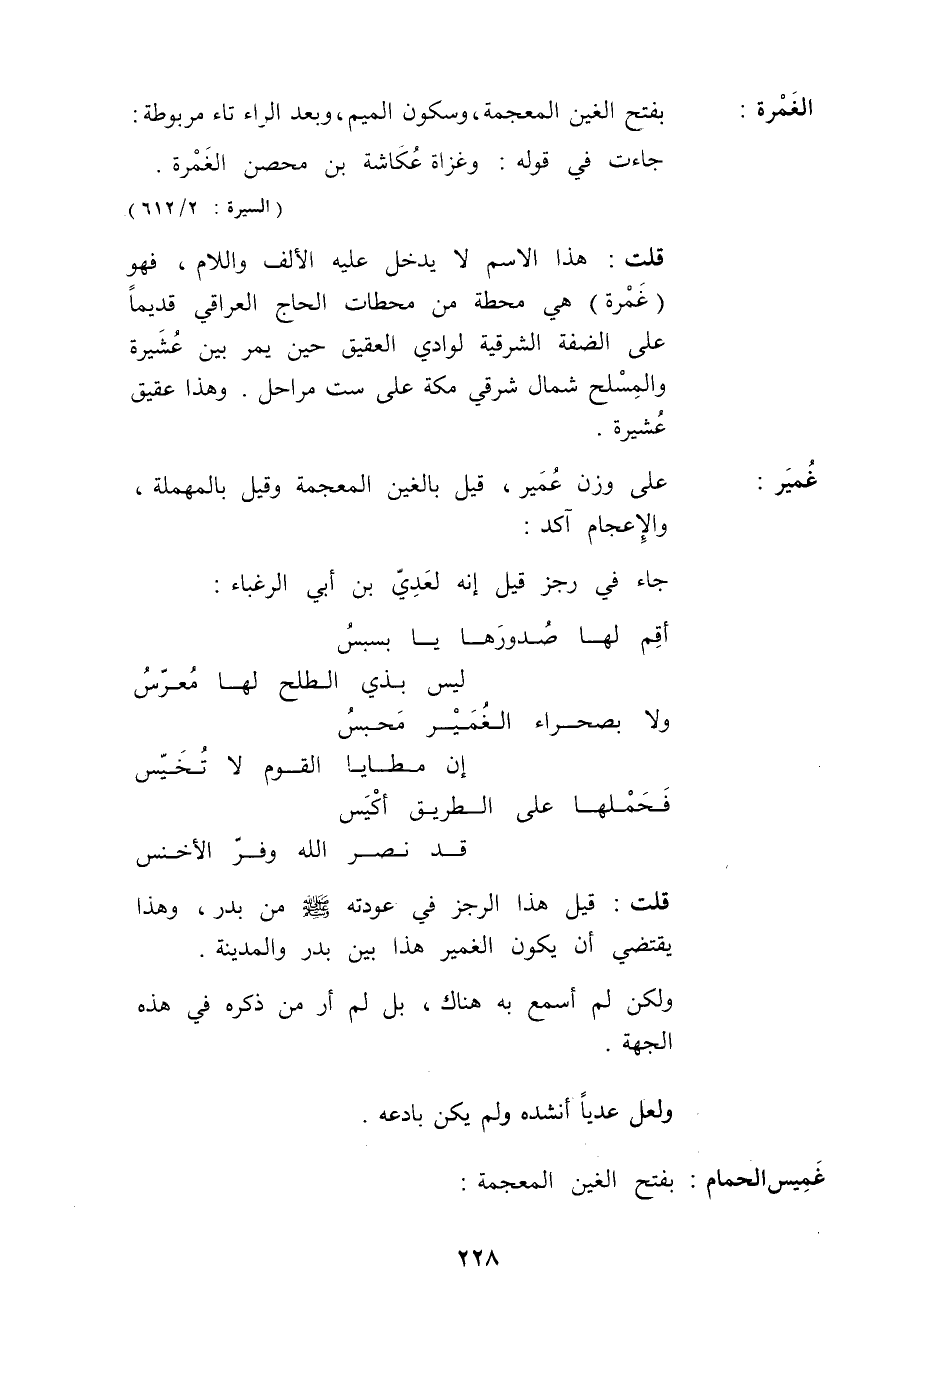 الغَمْرة : بفتح الغين المعجمة، وسكون الميم، وبعد الراء تاء مربوطة:
جاءت في قوله : وغزاة عُكَاشة بن محصن الغَمْرة .
( السيرة : ٢/ ٦١٢ )
قلت : هذا الاسم لا يدخل عليه الألف واللام ، فهو
( غَمْرة ) هي محطة من محطات الحاج العراقي قديماً
على الضفة الشرقية لوادي العقيق حين يمر بين عُشَيرة
والمِسْلح شمال شرقي مكة على ست مراحل . وهذا عقيق
عُشيرة .
غُميَر : على وزن عُمَير ، قيل بالغين المعجمة وقيل بالمهملة ،
والإعجام آكد :
جاء في رجز قيل إنه لعَدِيّ بن أبي الرغباء :
أقِم لهـا صُـدورَهـا يـا بسبسُ
ليس بـذي الطلح لهـا مُعـرّسُ
ولا بصحـراء الـغُمَـيْـر مَحـبسُ
إن مـطـايـا القـوم لا تُـخَـيّس
فَـحَمْـلهـا على الـطريـق أكْيَس
قـد نـصـر الله وفـرّ الأخـنس
قلت : قيل هذا الرجز في عودته ﷺ من بدر ، وهذا
يقتضي أن يكون الغمير هذا بين بدر والمدينة .
ولكن لم أسمع به هناك ، بل لم أر من ذكره في هذه
الجهة .
ولعل عدياً أنشده ولم يكن بادعه .
غَمِيس الحمام : بفتح الغين المعجمة :
٢٢٨